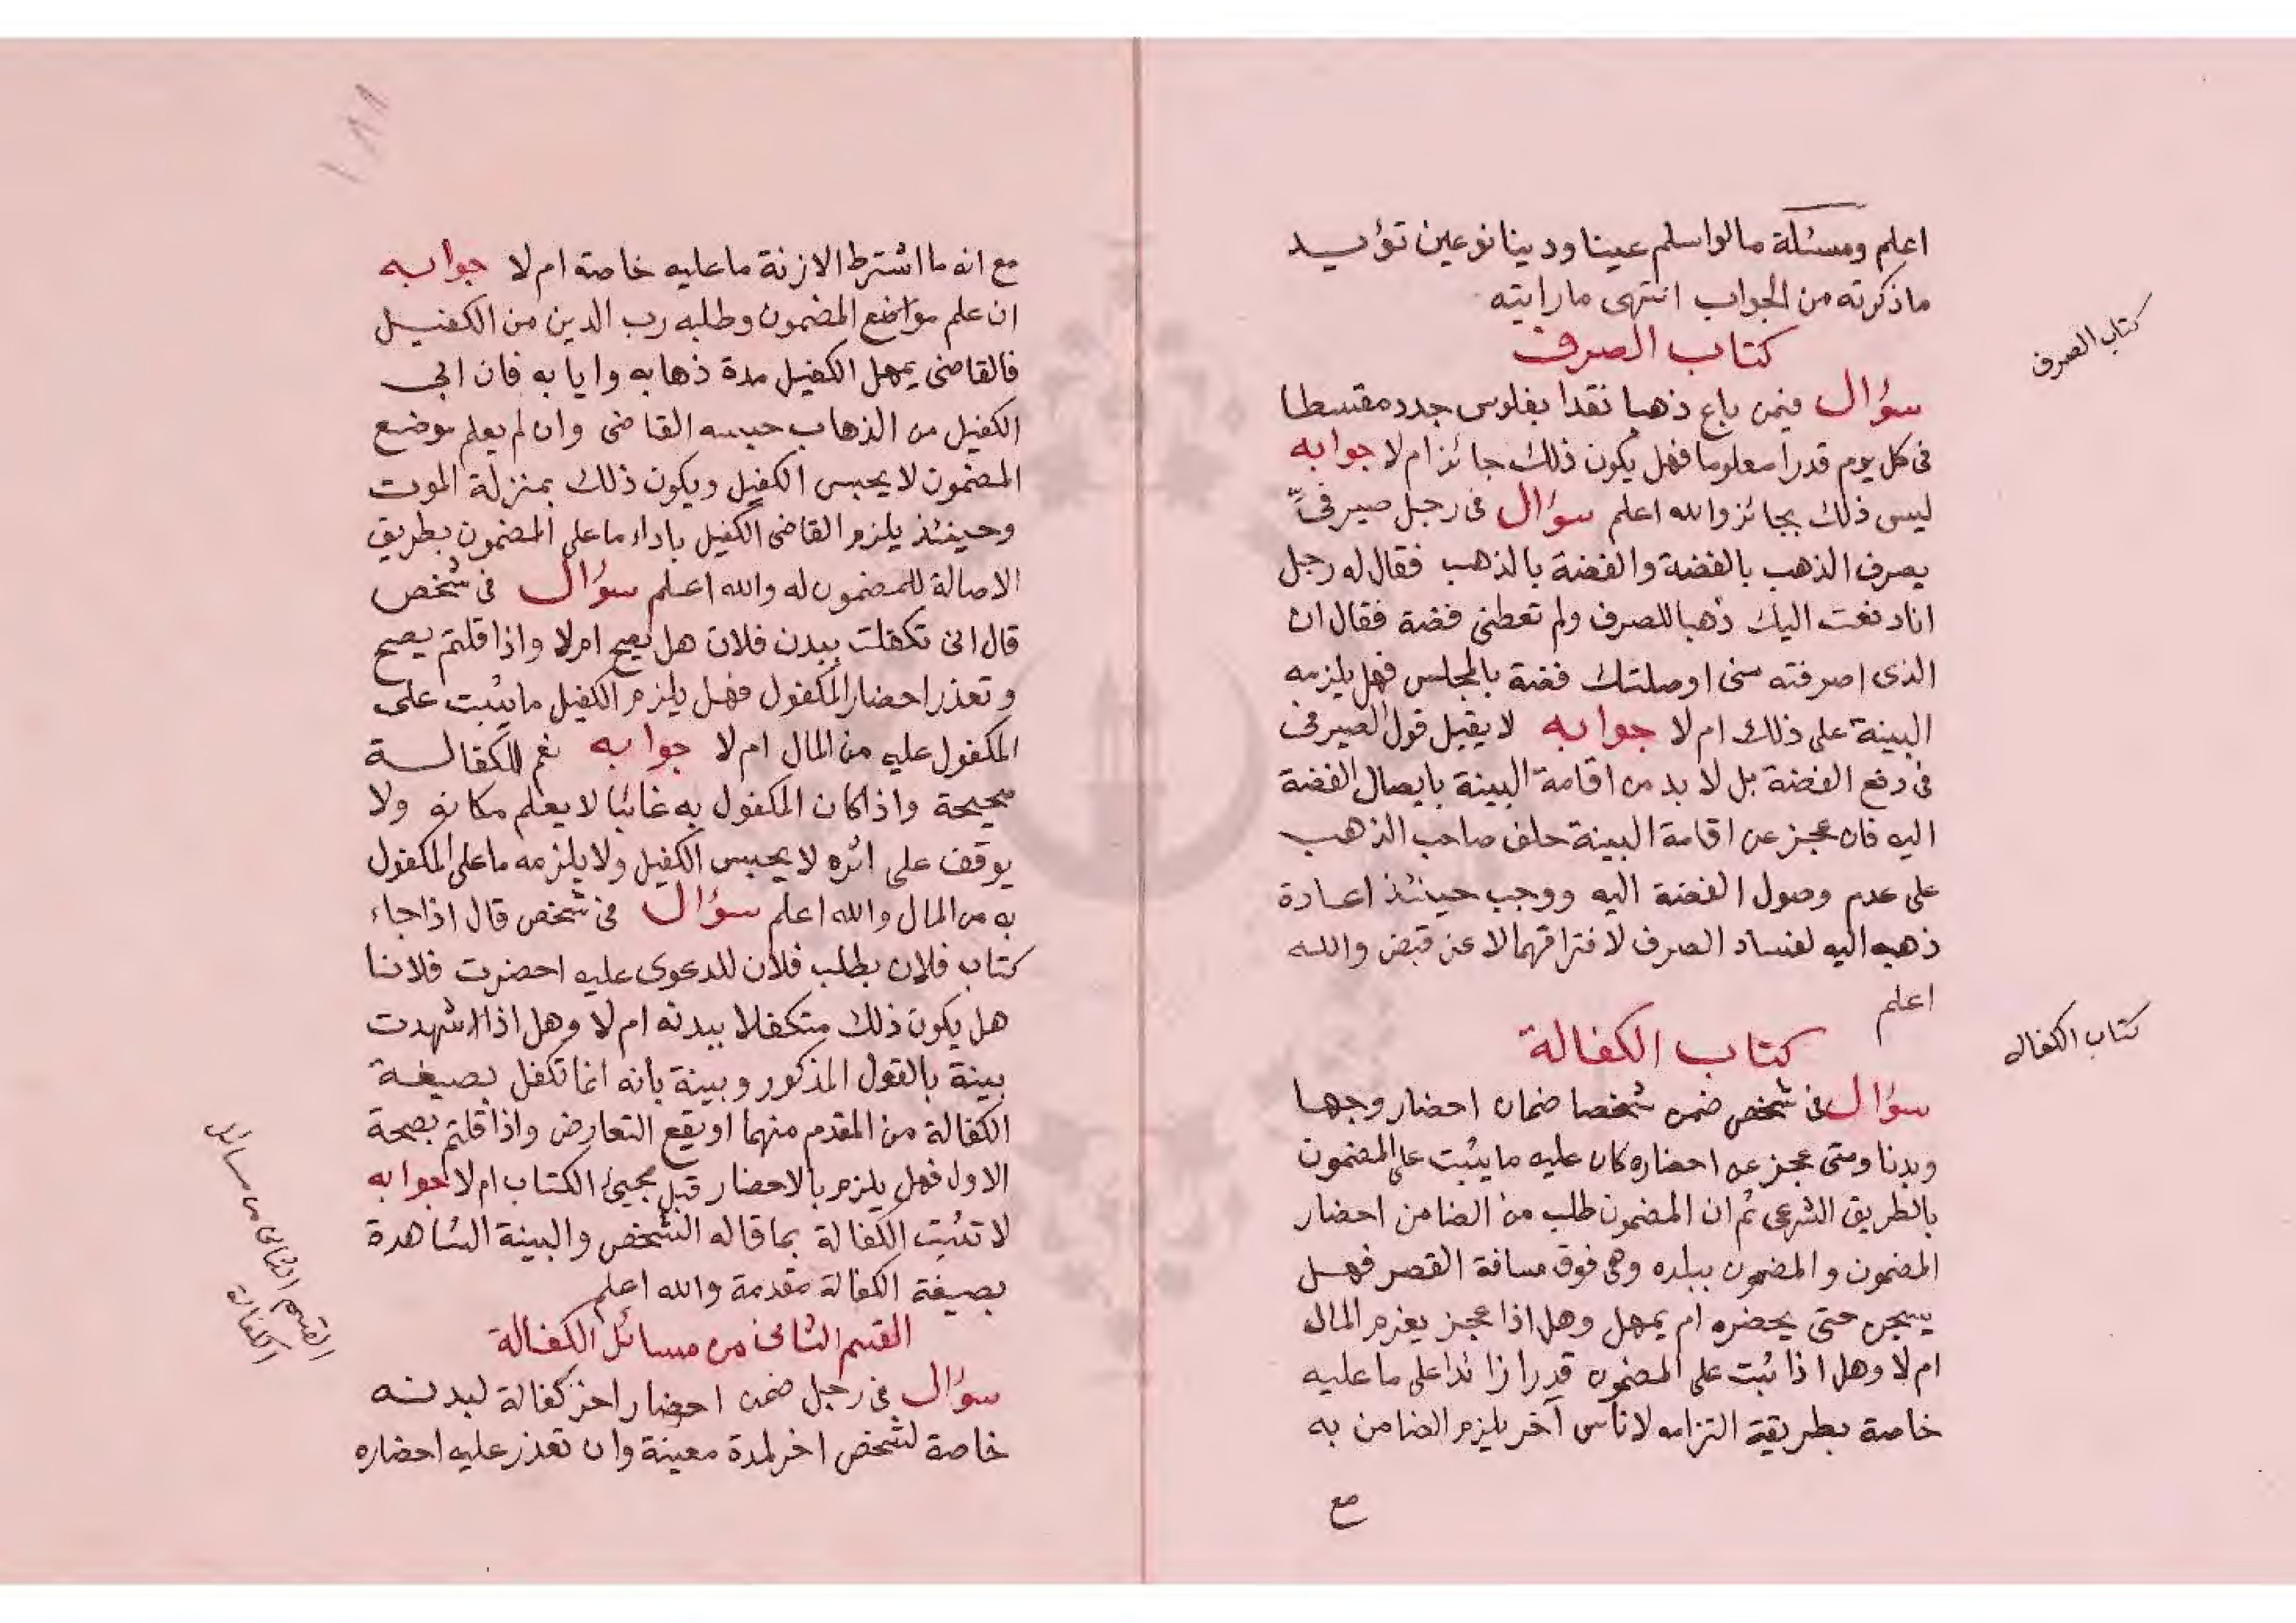 اعلم ومسئلة مالواسلم عينا ودينا نوعين تؤيد
ماذكرته من الجواب انتهى ما رايته
كتاب الصرف
كتاب الصرف
سؤال فيمن باع ذهبا نقدا بفلوس جدد مقسطا
فى كل يوم قدرا معلوما فهل يكون ذلك جائز ام لا جوابه
ليس ذلك بجائز والله اعلم سؤال فى رجل صيرفىّ
يصرف الذهب بالفضة والفضة بالذهب فقال له رجل
انا دفعت اليك ذهبا للصرف ولم تعطنى فضة فقال ان
الذى اصرفته منى اوصلتك فضة بالمجلس فهل يلزمه
البينة على ذلك ام لا جوابه لا يقبل قول الصيرفى
فى دفع الفضة بل لا بد من اقامة البينة بايصال الفضة
اليه فان عجز عن اقامة البينة حلف صاحب الذهب
على عدم وصول الفضة اليه ووجب حينئذ اعادة
ذهبه اليه لفساد الصرف لافتراقهما لا عن قبض والله
اعلم
كتاب الكفالة
كتاب الكفاله
سؤال فى شخص ضمن شخصا ضمان احضار وجها
وبدنا ومتى عجز عن احضاره كان عليه ما يثبت على المضمون
بالطريق الشرعى ثم ان المضمون طلب من الضامن احضار
المضمون والمضمون ببلده وهى فوق مسافة القصر فهل
يسجن حتى يحضره ام يمهل وهل اذا عجز يغرم المال
ام لا وهل اذا ثبت على المضمون قدرا زائدا على ما عليه
خاصة بطريقة التزامه لاناس آخر يلزم الضامن به
مع
١٨١
مع انه ما اشترط الا زنة ما عليه خاصة ام لا جوابه
ان علم مواضع المضمون وطلبه رب الدين من الكفيل
فالقاضى يمهل الكفيل مدة ذهابه وايابه فان ابى
الكفيل من الذهاب حبسه القاضى وان لم يعلم موضع
المضمون لا يحبس الكفيل ويكون ذلك بمنزلة الموت
وحينئذ يلزم القاضى الكفيل باداء ما على المضمون بطريق
الاصالة للمضمون له والله اعلم سؤال فى شخص
قال انى تكفلت ببدن فلان هل يصح ام لا واذا قلتم يصح
وتعذر احضار المكفول فهل يلزم الكفيل ما يثبت على
المكفول عليه من المال ام لا جوابه نعم الكفالة
صحيحة واذا كان المكفول به غائبا لا يعلم مكانه ولا
يوقف على اثره لا يحبس الكفيل ولا يلزمه ما على المكفول
به من المال والله اعلم سؤال فى شخص قال اذا جاء
كتاب فلان بطلب فلان للدعوى عليه احضرت فلانا
هل يكون ذلك متكفلا ببدنه ام لا وهل اذا اشهدت
بينة بالقول المذكور وبينة بانه انما تكفل بصيغة
الكفالة من المقدم منهما او يقع التعارض واذا قلتم بصحة
الاول فهل يلزم بالاحضار قبل مجيئ الكتاب ام لا جوابه
لا تثبت الكفالة بما قاله الشخص والبينة الشاهدة
بصيغة الكفالة مقدمة والله اعلم
القسم الثانى من مسائل الكفالة
القسم الثانى من مسائل
الكفالة
سؤال فى رجل ضمن احضار اخر كفالة لبدنه
خاصة لشخص اخر لمدة معينة وان تعذر عليه احضاره